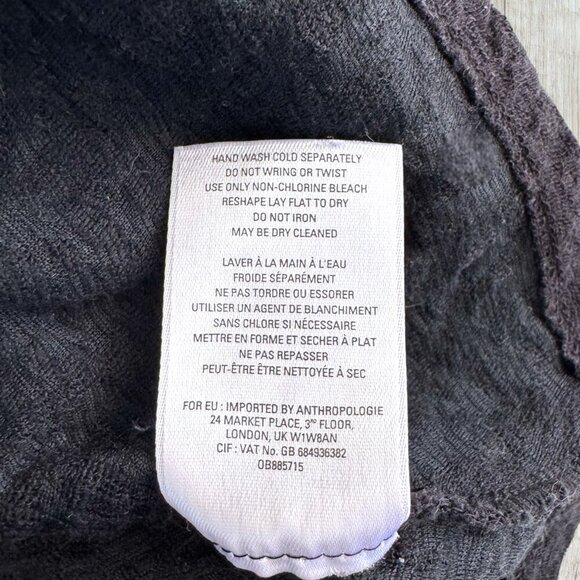 HAND WASH COLD SEPARATELY
DO NOT WRING OR TWIST
USE ONLY NON-CHLORINE BLEACH
RESHAPE LAY FLAT TO DRY
DO NOT IRON
MAY BE DRY CLEANED
LAVER À LA MAIN À L'EAU
FROIDE SÉPARÉMENT
NE PAS TORDRE OU ESSORER
UTILISER UN AGENT DE BLANCHIMENT
SANS CHLORE SI NÉCESSAIRE
METTRE EN FORME ET SECHER À PLAT
NE PAS REPASSER
PEUT-ÊTRE ÊTRE NETTOYÉE À SEC
FOR EU : IMPORTED BY ANTHROPOLOGIE
24 MARKET PLACE, 3RD FLOOR,
LONDON, UK W1W8AN
CIF : VAT No. GB 684936382
OB885715